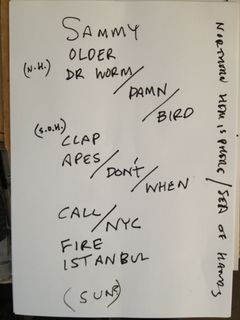 SAMMY
OLDER
(N.H.) DR WORM/
DAMN/
BIRD
(S.O.H.) CLAP
APES/DON'T/
WHEN
CALL/NYC
FIRE
ISTANBUL
(SUN)
NORTHERN HEMISPHERE/SEA OF HANDS